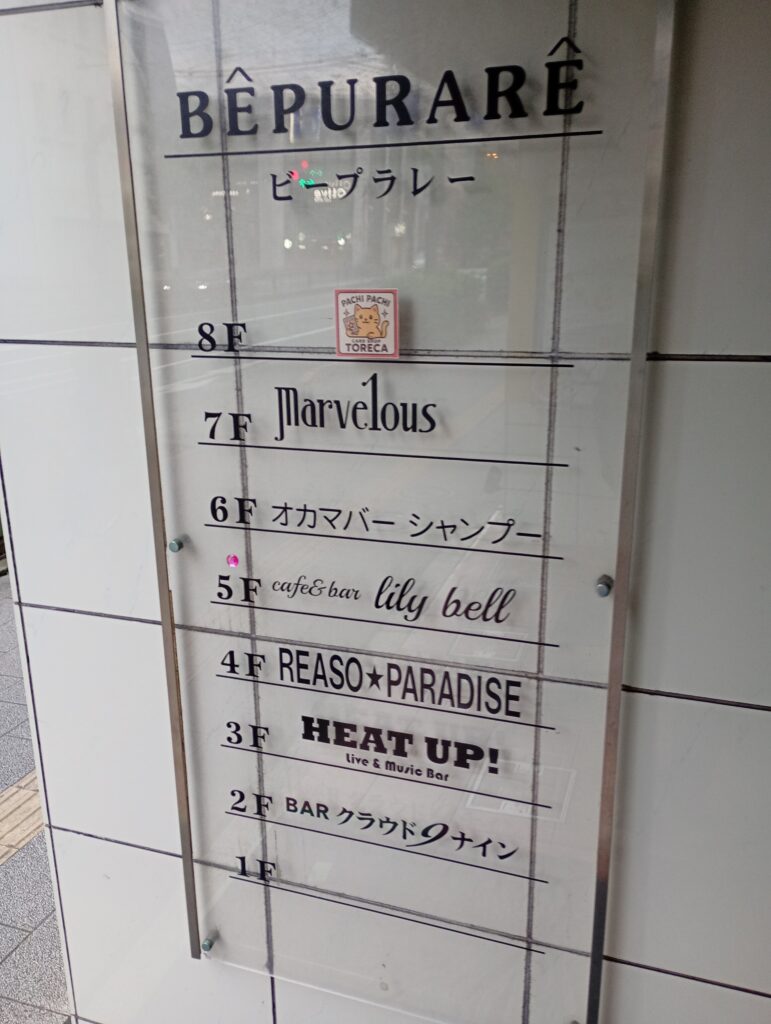 BÊPURARÊ
ビープラレー
8F PACHI PACHI
CARD SHOP
TORECA
7F marve1ous
6F オカマバー シャンプー
5F cafe&bar lily bell
4F REASO★PARADISE
3F HEAT UP!
Live & Music Bar
2F BAR クラウド9ナイン
1F